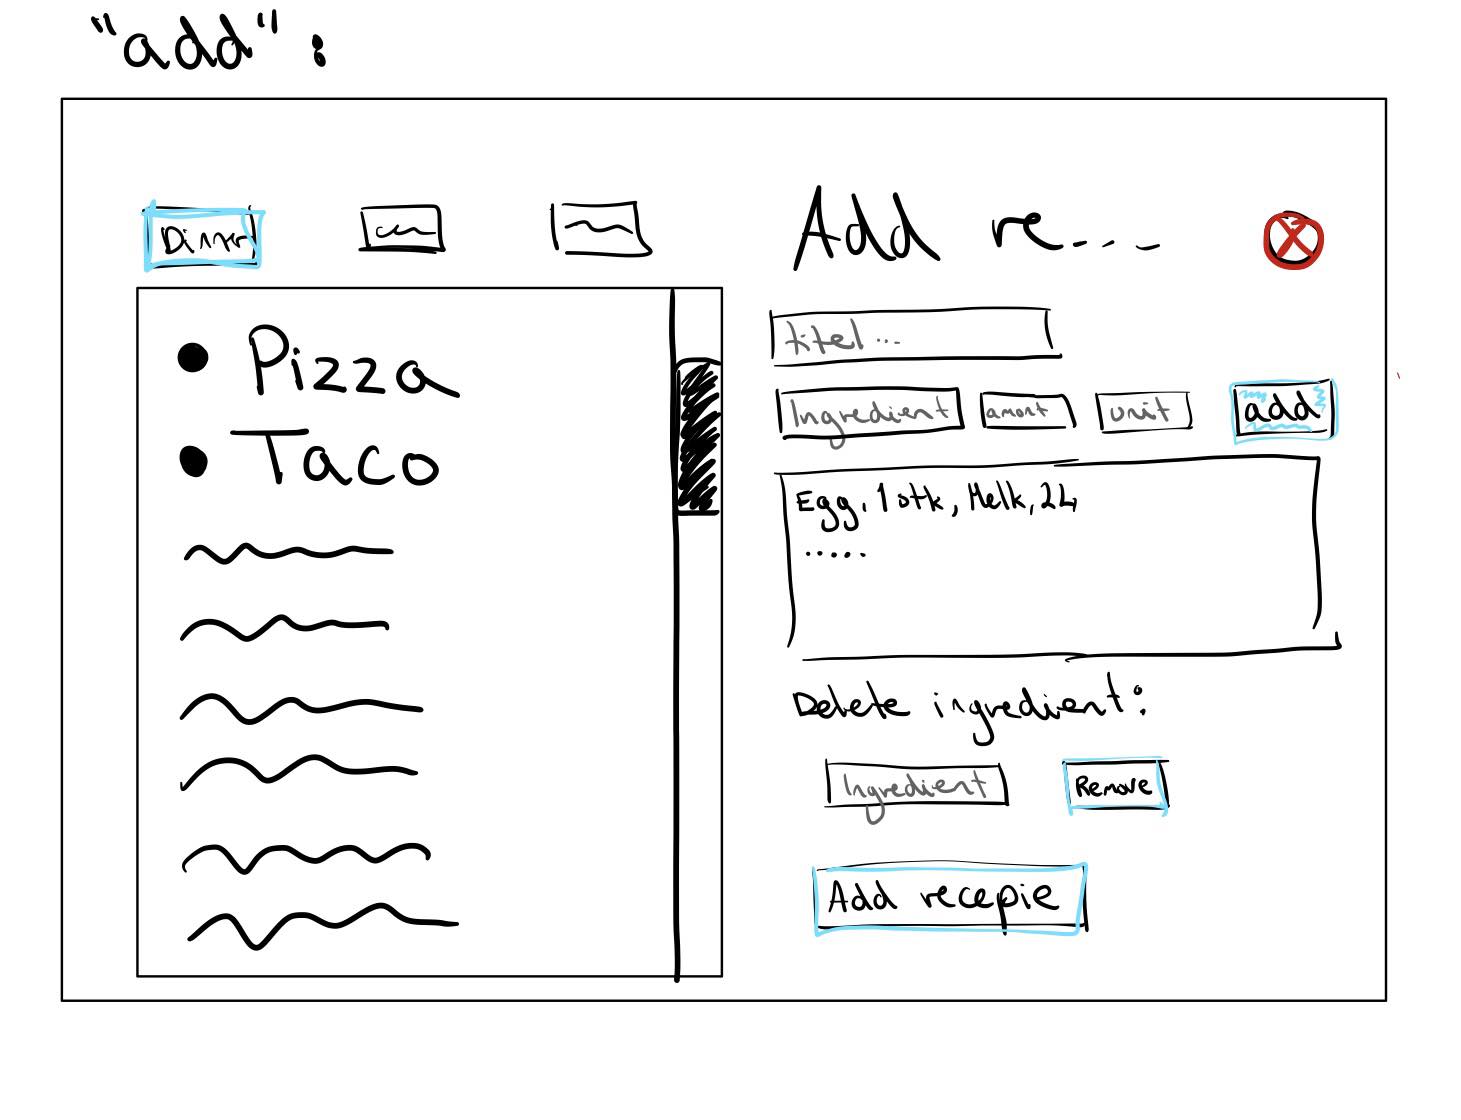 "add":
Dinner
Pizza
Taco
Add re....
titel...
Ingredient amont unit add
Egg, 1 stk, Melk, 2L
.....
Delete ingredient:
Ingredient Remove
Add recepie